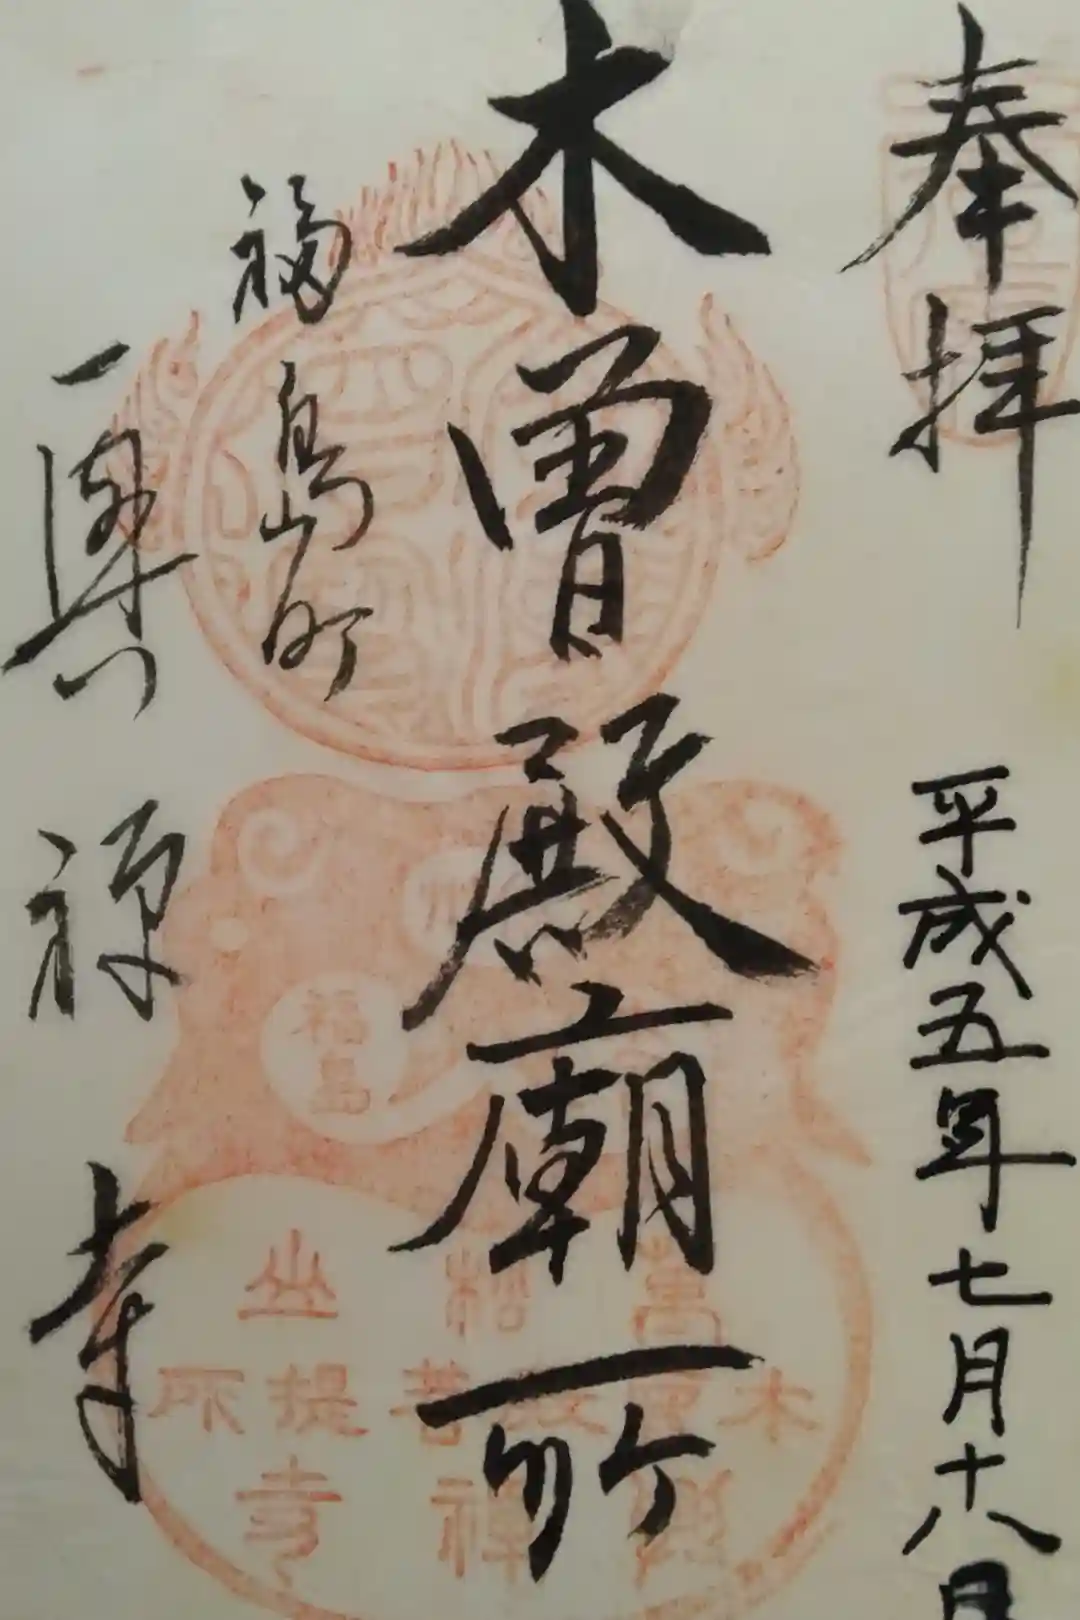 奉拝
平成五年七月十八日
木曽殿廟所
福島町
興禅寺
福島
木曽殿菩提所
禅寺